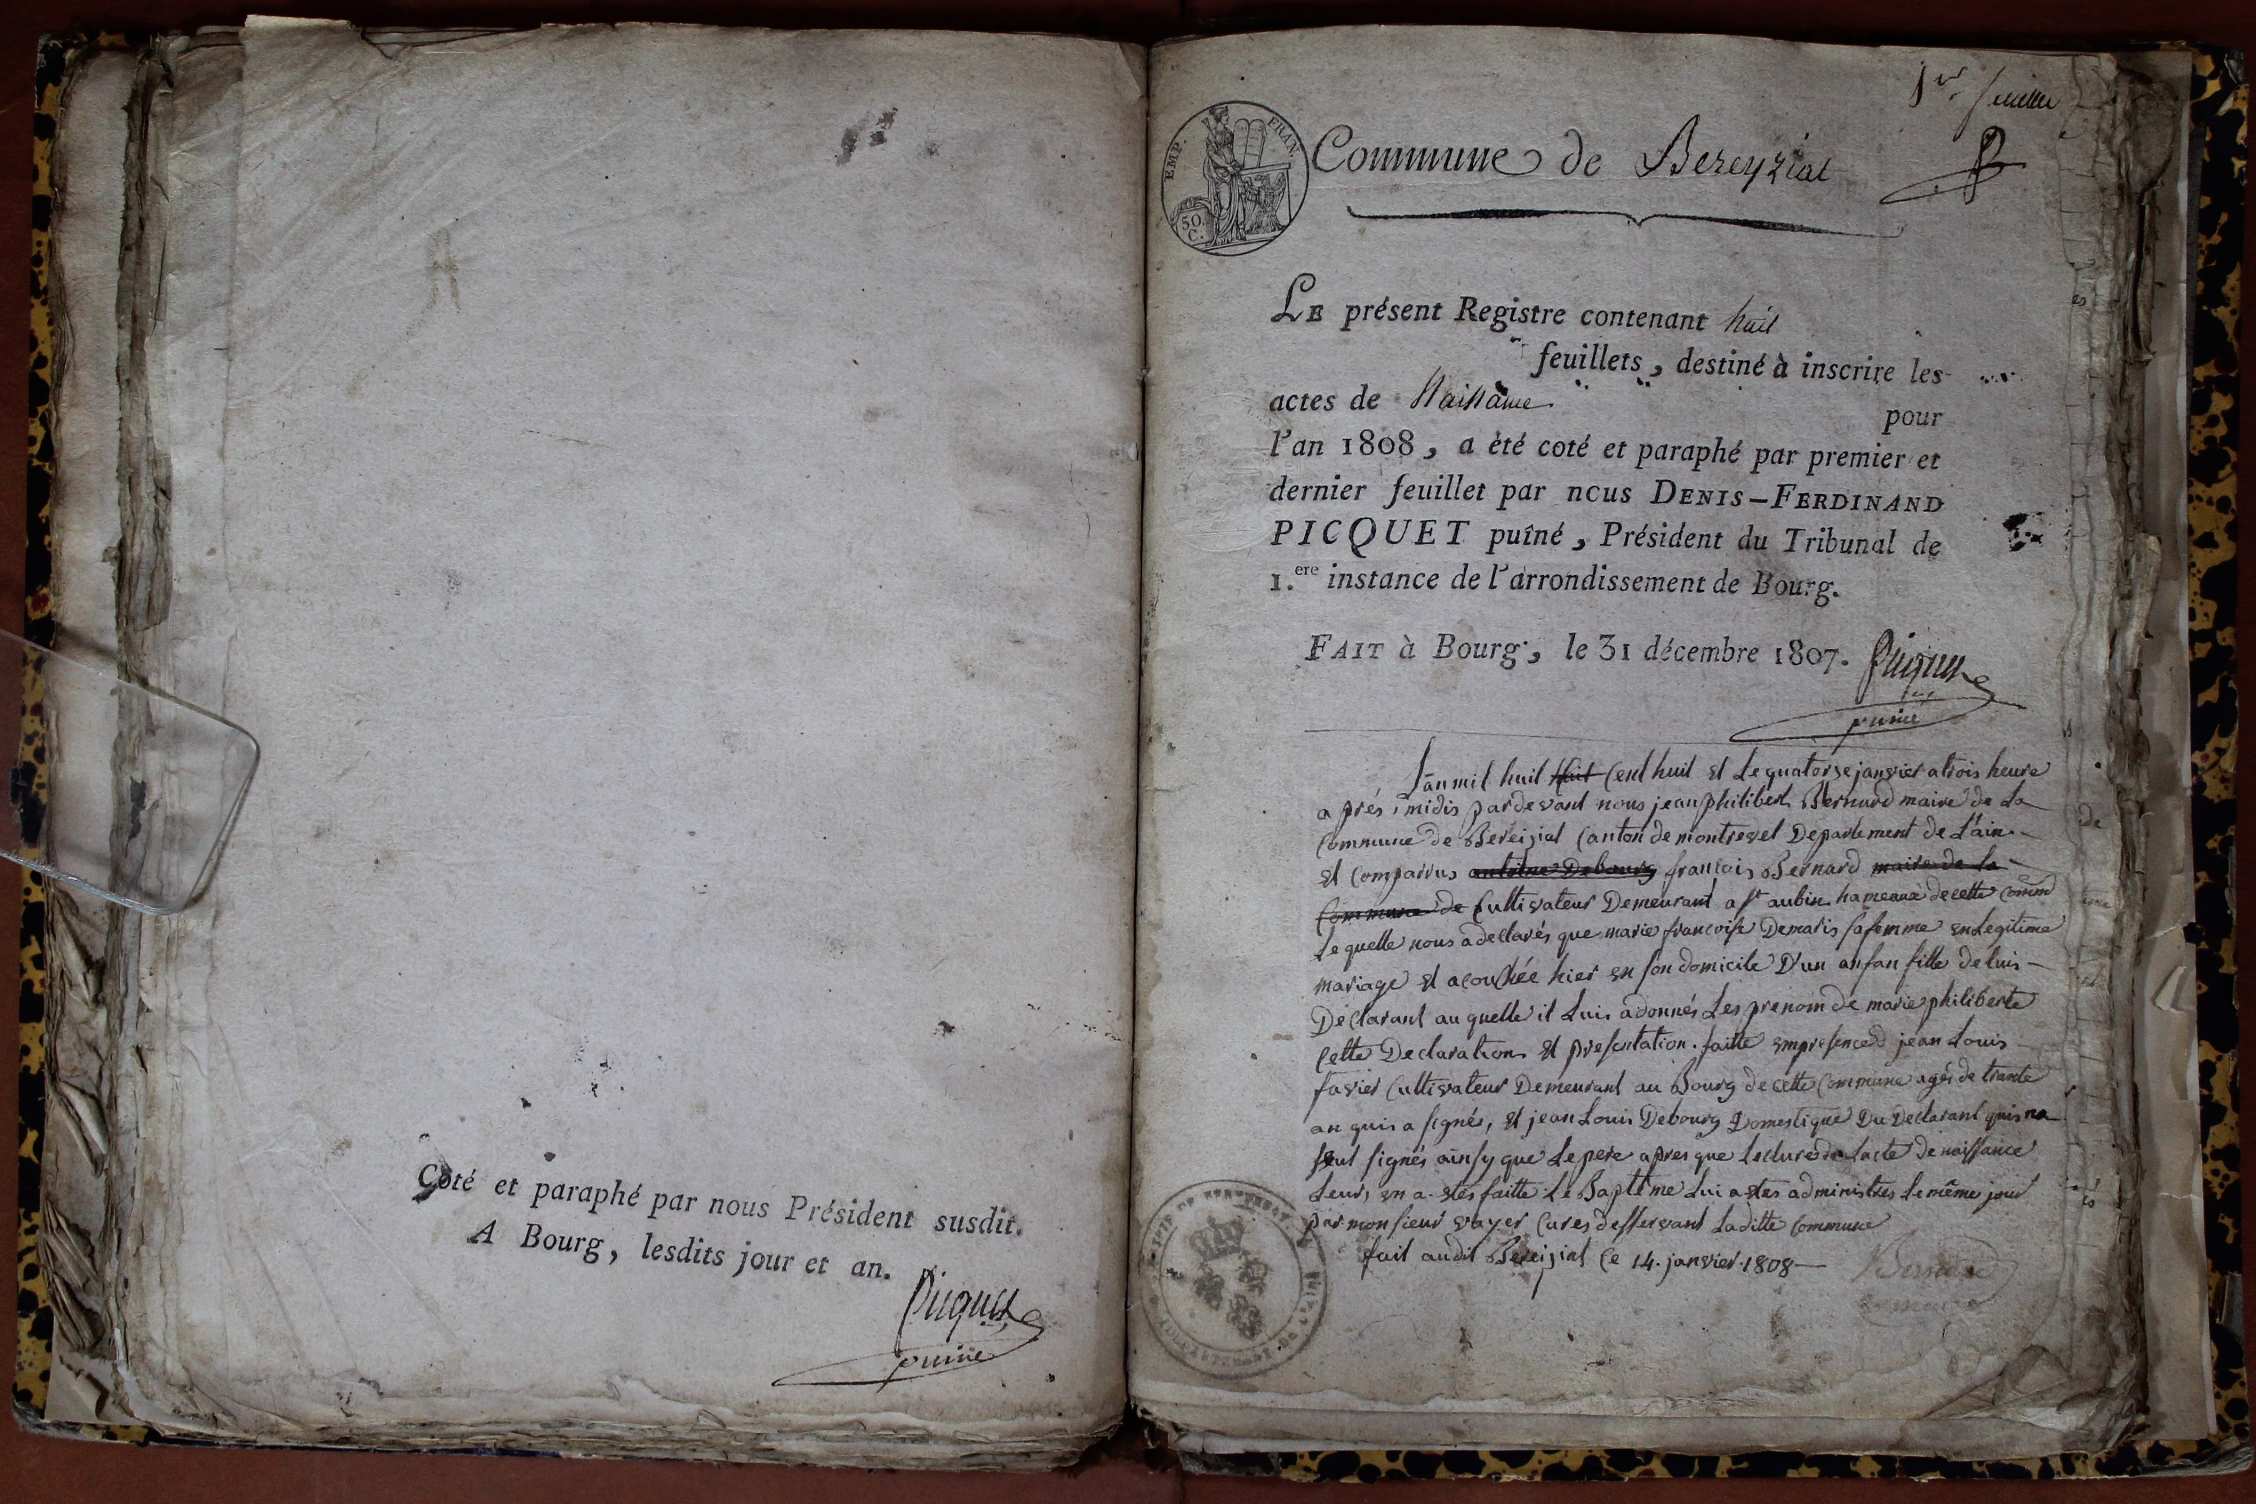 Coté et paraphé par nous Président susdit.
A Bourg, lesdits jour et an.
Picquet
puiné
1er feuillet
EMP. FRAN.
50
C.
Commune de Bereyziat
LE présent Registre contenant huit
feuillets, destiné à inscrire les
actes de Naissance
pour
l'an 1808, a été coté et paraphé par premier et
dernier feuillet par nous DENIS-FERDINAND
PICQUET puîné, Président du Tribunal de
1.ere instance de l'arrondissement de Bourg.
FAIT à Bourg, le 31 décembre 1807. Picquet
puiné
L'an mil huil huit Cent huil et le quatorze janvier a trois heure
a prés midis par devant nous jean philibert Bernard maire de la
Commune de Bereizial Canton de montrevel Departement de L'ain
et Comparrus antoine Debourg francois Bernard maire de la
Commune de Cultivateur Demeurant a St aubin hameaux de cette Comm
Le quelle nous a declarés que marie francoise Demaris sa femme en Legitime
mariage et acouchée hier en son domicile D'un anfan fille de luis
Déclarant au quelle il Luis a donnés Les prenom de marie philiberte
Cette Declaration et presentation faitte en presence de jean Louis
favier Cultivateur Demeurant au Bourg de cette Commune agés de trante
an quis a signés, et jean Louis Debourg Domestique Du Declarant quis na
seut signés ainsy que Le pere apres que Lecture de Lacte de naissance
Leurs en a étés faitte Le Baptême Lui a étés administres Le même jour
par monsieur vayer Cures desservant Laditte Commune
fait audit Bereizial Ce 14. janvier. 1808
Bernard
maire